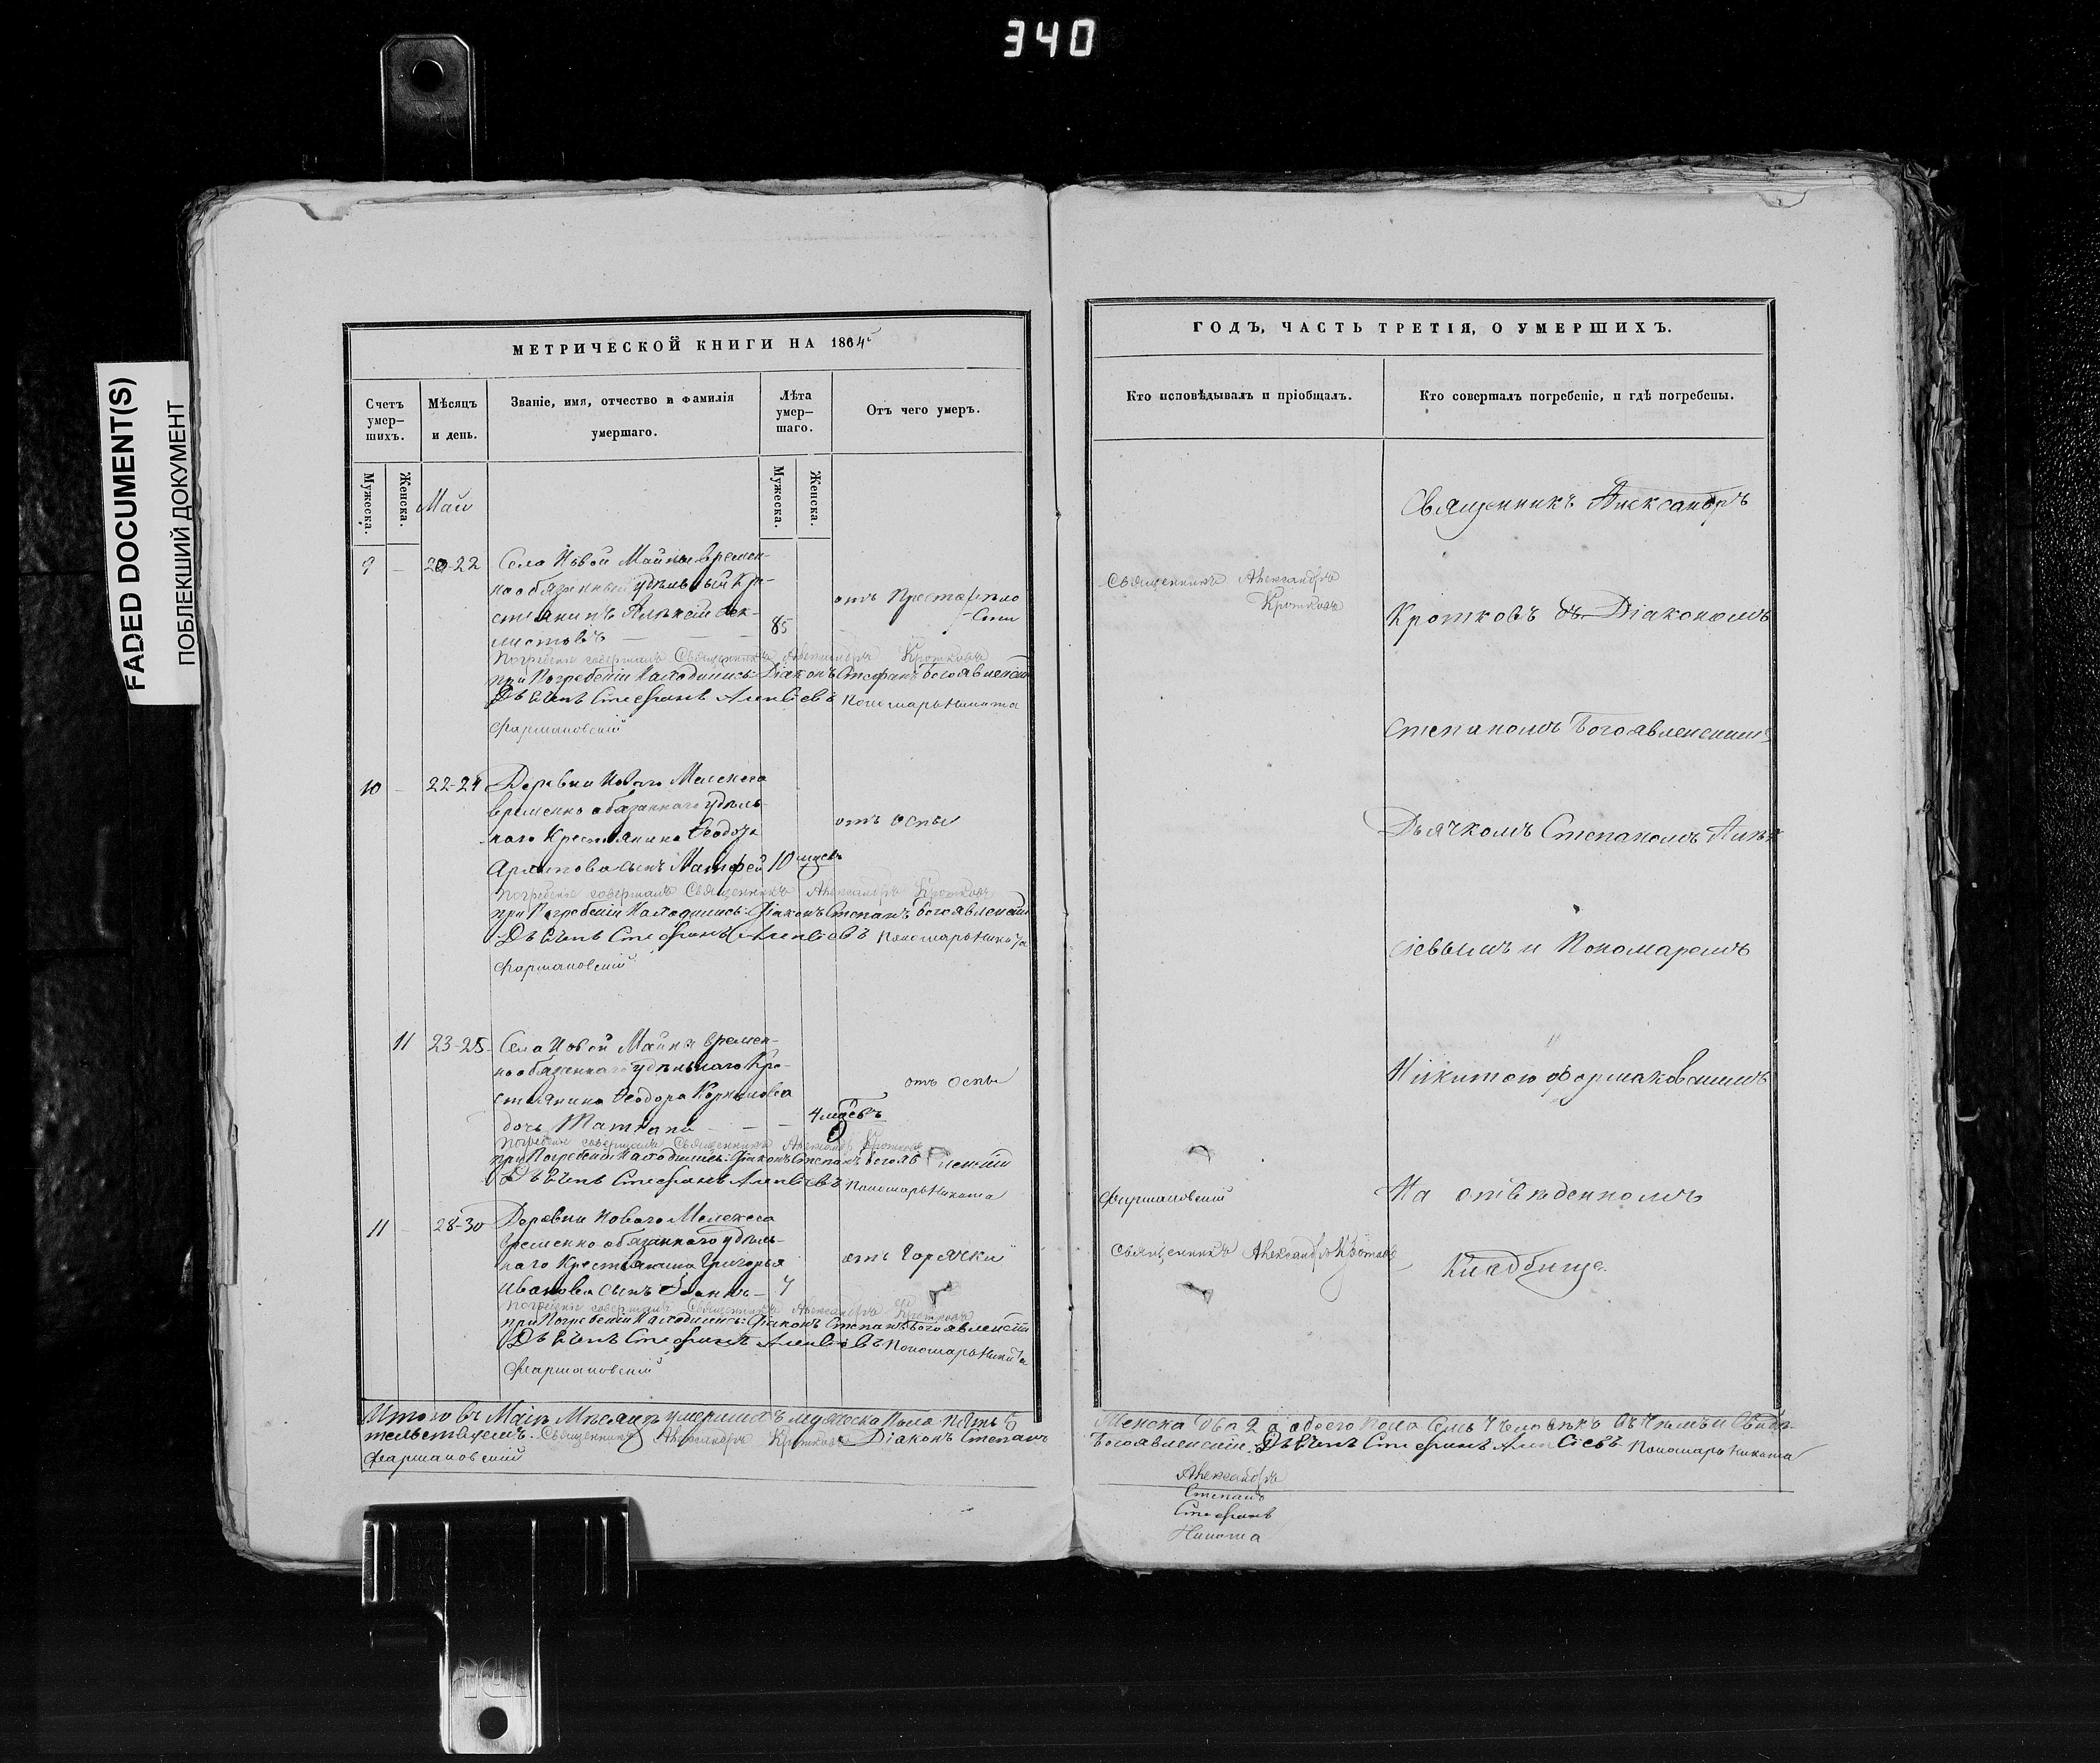 340
FADED DOCUMENT(S)
ПОБЛЕКШИЙ ДОКУМЕНТ
МЕТРИЧЕСКОЙ КНИГИ НА 1864
Счетъ умер-шихъ.
Мѣсяцъ и день.
Званіе, имя, отчество и фамилія умершаго.
Лѣта умер-шаго.
Отъ чего умеръ.
Мужеска.
Женска.
Мужеска.
Женска.
Май
9 20-22 Села Новой Майны времен-
но обязанный удѣльный Кре-
стьянинъ Алексѣй
85
отъ Престарѣло
сти
Погребеніе совершалъ Священникъ Александръ Кротковъ
при Погребеніи Находились: Діаконъ Стефанъ Богоявленскій
Стефанъ Алексіевъ Пономарь Никита
Фармаковскій
10 22-24 Деревни Новаго Мелекеса
временно обязаннаго удѣль-
наго Крестьянина Ѳеодора
сынъ Матфей 10 мцевъ
отъ Оспы
Погребеніе совершалъ Священникъ Александръ Кротковъ
при Погребеніи Находились: Діаконъ Степанъ Богоявленскій
Стефанъ Алексіевъ Пономарь Никита
Фармаковскій
11 23-25 Села Новой Майны времен-
но обязаннаго удѣльнаго Кре-
стьянина Ѳеодора Корнилова
дочь Татіана
4
отъ Оспы
Погребеніе совершалъ Священникъ Александръ Кротковъ
при Погребеніи Находились: Діаконъ Степанъ Богоявленскій
Стефанъ Алексіевъ Пономарь Никита
11 28-30 Деревни Новаго Мелекеса
временно обязаннаго удѣль-
наго Крестьянина Григорья
Иванова сынъ
отъ Горячки
Погребеніе совершалъ Священникъ Александръ Кротковъ
при Погребеніи Находились: Діаконъ Степанъ Богоявленскій
Стефанъ Алексіевъ Пономарь Никита
Фармаковскій
Итого въ Маіи Мѣсяцѣ умершихъ мужеска Пола пять 5
тельствуемъ. Священникъ Александръ Кротковъ Діаконъ Степанъ
Фармаковскій
ГОДЪ, ЧАСТЬ ТРЕТІЯ, О УМЕРШИХЪ.
Кто исповѣдывалъ и пріобщалъ.
Кто совершалъ погребеніе, и гдѣ погребены.
Священникъ Александръ
Кротковъ
Фармаковскій
Священникъ Александръ Кротковъ
Священникъ Александръ
Кротковъ съ Діакономъ
Степаномъ Богоявленскимъ
Дьячкомъ Степаномъ Алек
сіевымъ и Пономаремъ
Никитою Фармаковскимъ
На отведенномъ
Кладбище.
Женска два 2 а обоего пола семь человѣкъ въ чемъ и Свидѣ-
Богоявленскій. Стефанъ Алексіевъ Пономарь Никита
Александръ
Степанъ
Стефанъ
Никита